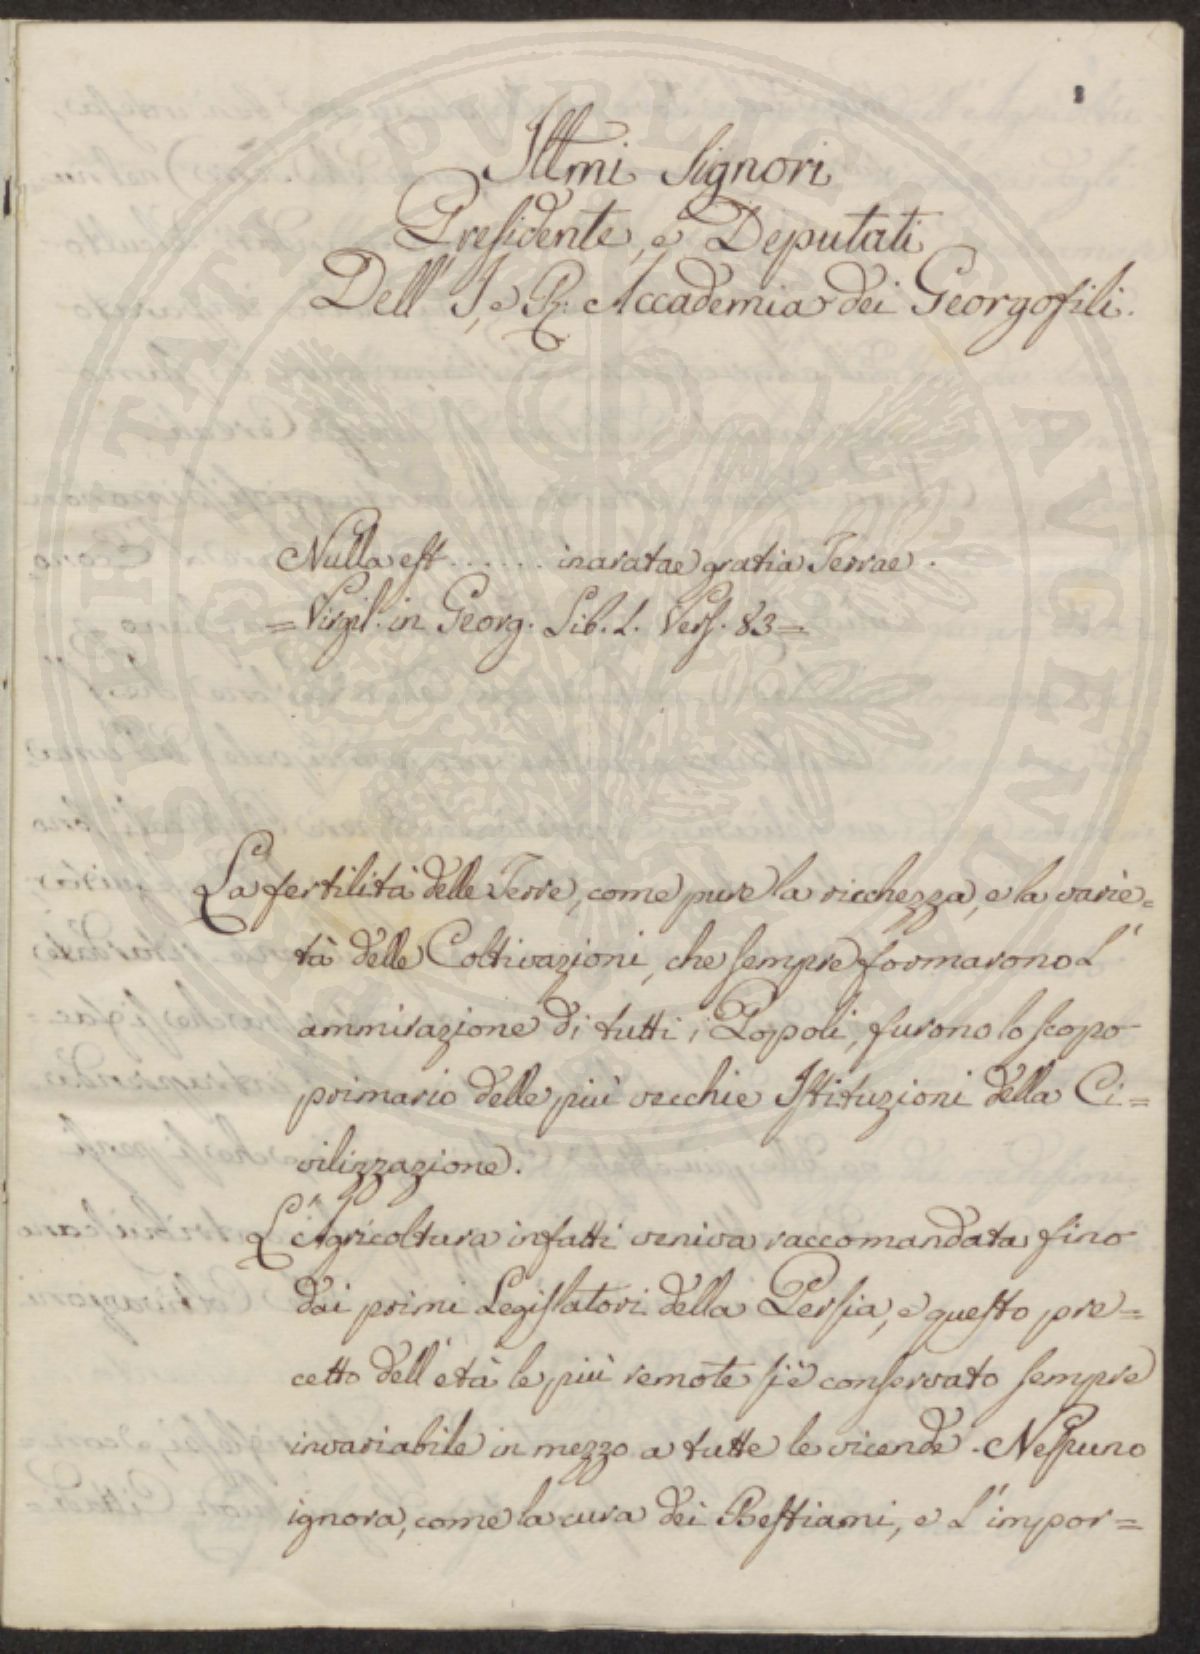 Illmi Signori
Presidente, e Deputati
Dell' I, e R: Accademia dei Georgofili.
Nulla est ...... inaratae gratia Terrae.
= Virgil. in Georg. Lib. I. Vers. 83 =
La fertilità delle Terre, come pure la ricchezza, e la varie=
tà delle Coltivazioni, che sempre formarono L'
ammirazione di tutti i Popoli, furono lo scopo
primario delle più vecchie Istituzioni della Ci=
vilizzazione.
L'Agricoltura infatti veniva raccomandata fino
dai primi Legislatori della Persia, e questo pre=
cetto dell'età le più remote si è conservato sempre
invariabile in mezzo a tutte le vicende. Nessuno
ignora, come la cura dei Bestiami, e L'impor=